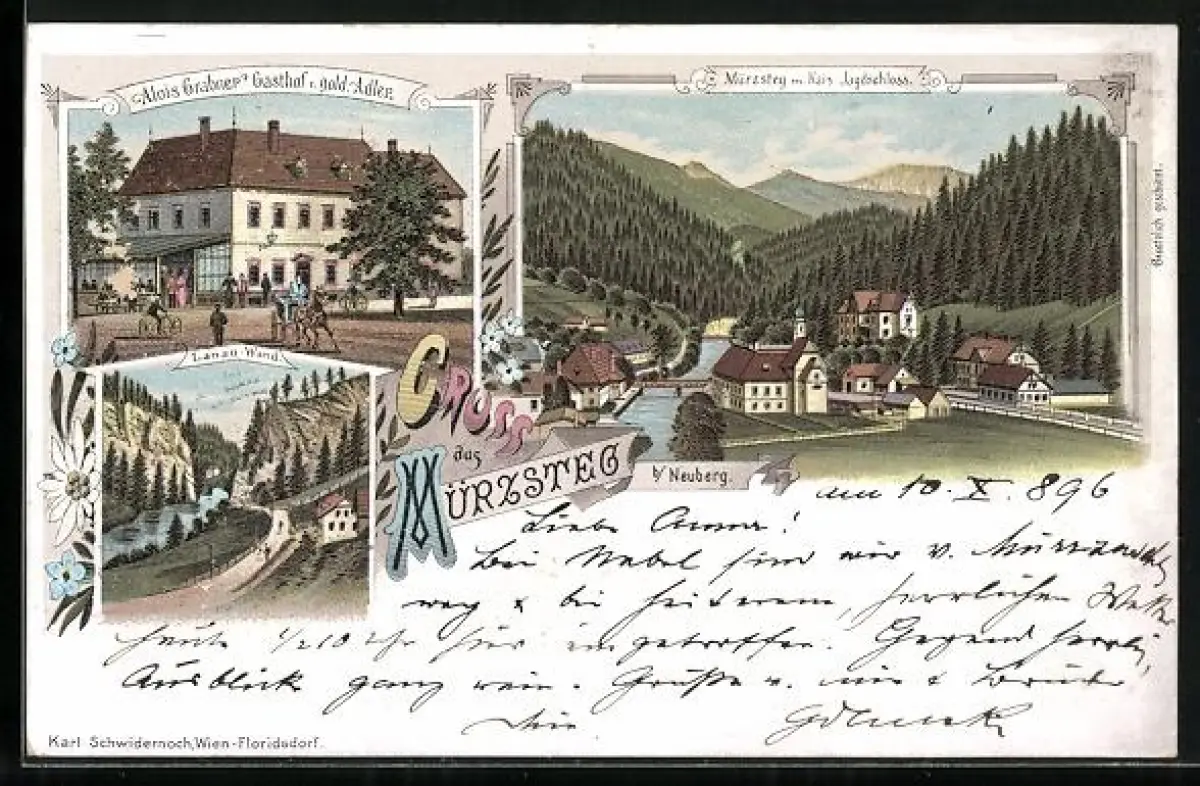 Alois Grabner's Gasthof z. gold. Adler.
Mürzsteg m. Kais. Jagdschloss.
Gesetzlich geschützt.
Lanau-Wand.
Gruss
aus
Mürzsteg
b/ Neuberg.
am 10. X. 896
Liebe Anna!
Bei Nebel sind wir v. Mürzzuschlag
weg & bei heiterem, herrlichen Wetter
heute 1/2 10 Uhr hier eingetroffen. Gegend herrlich,
Ausblick ganz rein. Grüße v. mir & Bruder
Dein
Karl Schwidernoch, Wien-Floridsdorf.